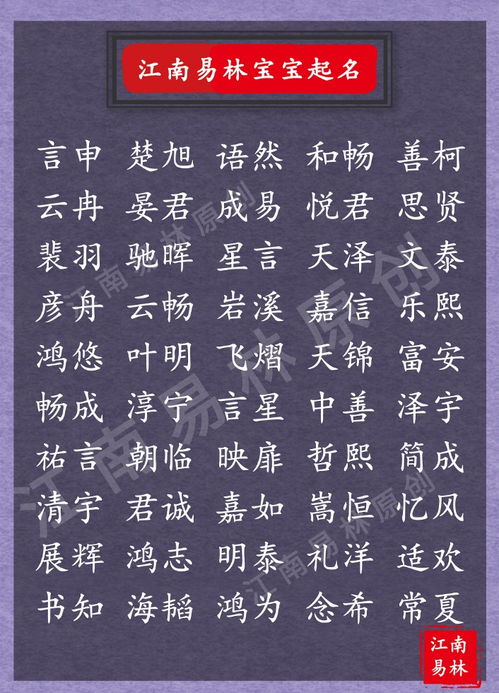 江南易林宝宝起名
言申 楚旭 语然 和畅 善柯
云冉 晏君 成易 悦君 思贤
裴羽 驰晖 星言 天泽 文泰
彦舟 云畅 岩溪 嘉信 乐熙
鸿悠 叶明 飞熠 天锦 富安
畅成 淳宁 言星 中善 泽宇
祐言 朝临 映扉 哲熙 简成
清宇 君诚 嘉如 嵩恒 忆风
展辉 鸿志 明泰 礼洋 适欢
书知 海韬 鸿为 念希 常夏
江南易林原创
江南易林原创
江南易林原创
江南
易林